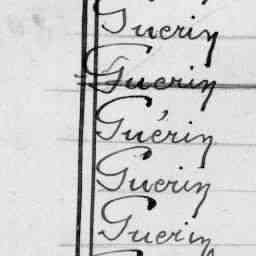 Guerin
Guerin
Guérin
Guerin
Guerin